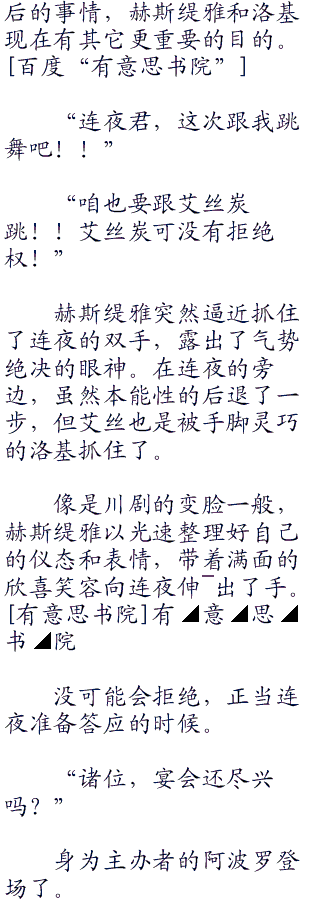 后的事情，赫斯缇雅和洛基
现在有其它更重要的目的。
[百度“有意思书院”]
“连夜君，这次跟我跳
舞吧！！”
“咱也要跟艾丝炭
跳！！艾丝炭可没有拒绝
权！”
赫斯缇雅突然逼近抓住
了连夜的双手，露出了气势
绝决的眼神。在连夜的旁
边，虽然本能性的后退了一
步，但艾丝也是被手脚灵巧
的洛基抓住了。
像是川剧的变脸一般，
赫斯缇雅以光速整理好自己
的仪态和表情，带着满面的
欣喜笑容向连夜伸¯出了手。
[有意思书院]有◢意◢思◢
书◢院
没可能会拒绝，正当连
夜准备答应的时候。
“诸位，宴会还尽兴
吗？”
身为主办者的阿波罗登
场了。